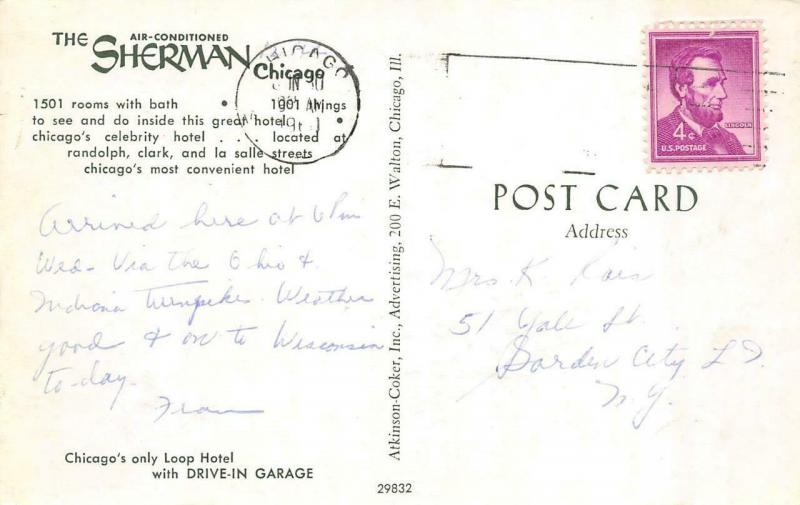 THE AIR-CONDITIONED
SHERMAN
Chicago
1501 rooms with bath • 1001 things
to see and do inside this great hotel •
chicago's celebrity hotel . . . located at
randolph, clark, and la salle streets
chicago's most convenient hotel
CHICAGO
JUN 30
AM
Arrived here at 6 P.m
Wed- Via the Ohio &
Indiana Turnpikes. Weather
good & on to Wisconsin
to-day.
Fran
Chicago's only Loop Hotel
with DRIVE-IN GARAGE
Atkinson-Coker, Inc., Advertising, 200 E. Walton, Chicago, Ill.
29832
LINCOLN
4¢
U.S. POSTAGE
POST CARD
Address
Mrs. K.
51 Yale St.
Garden City L.I.
N.Y.